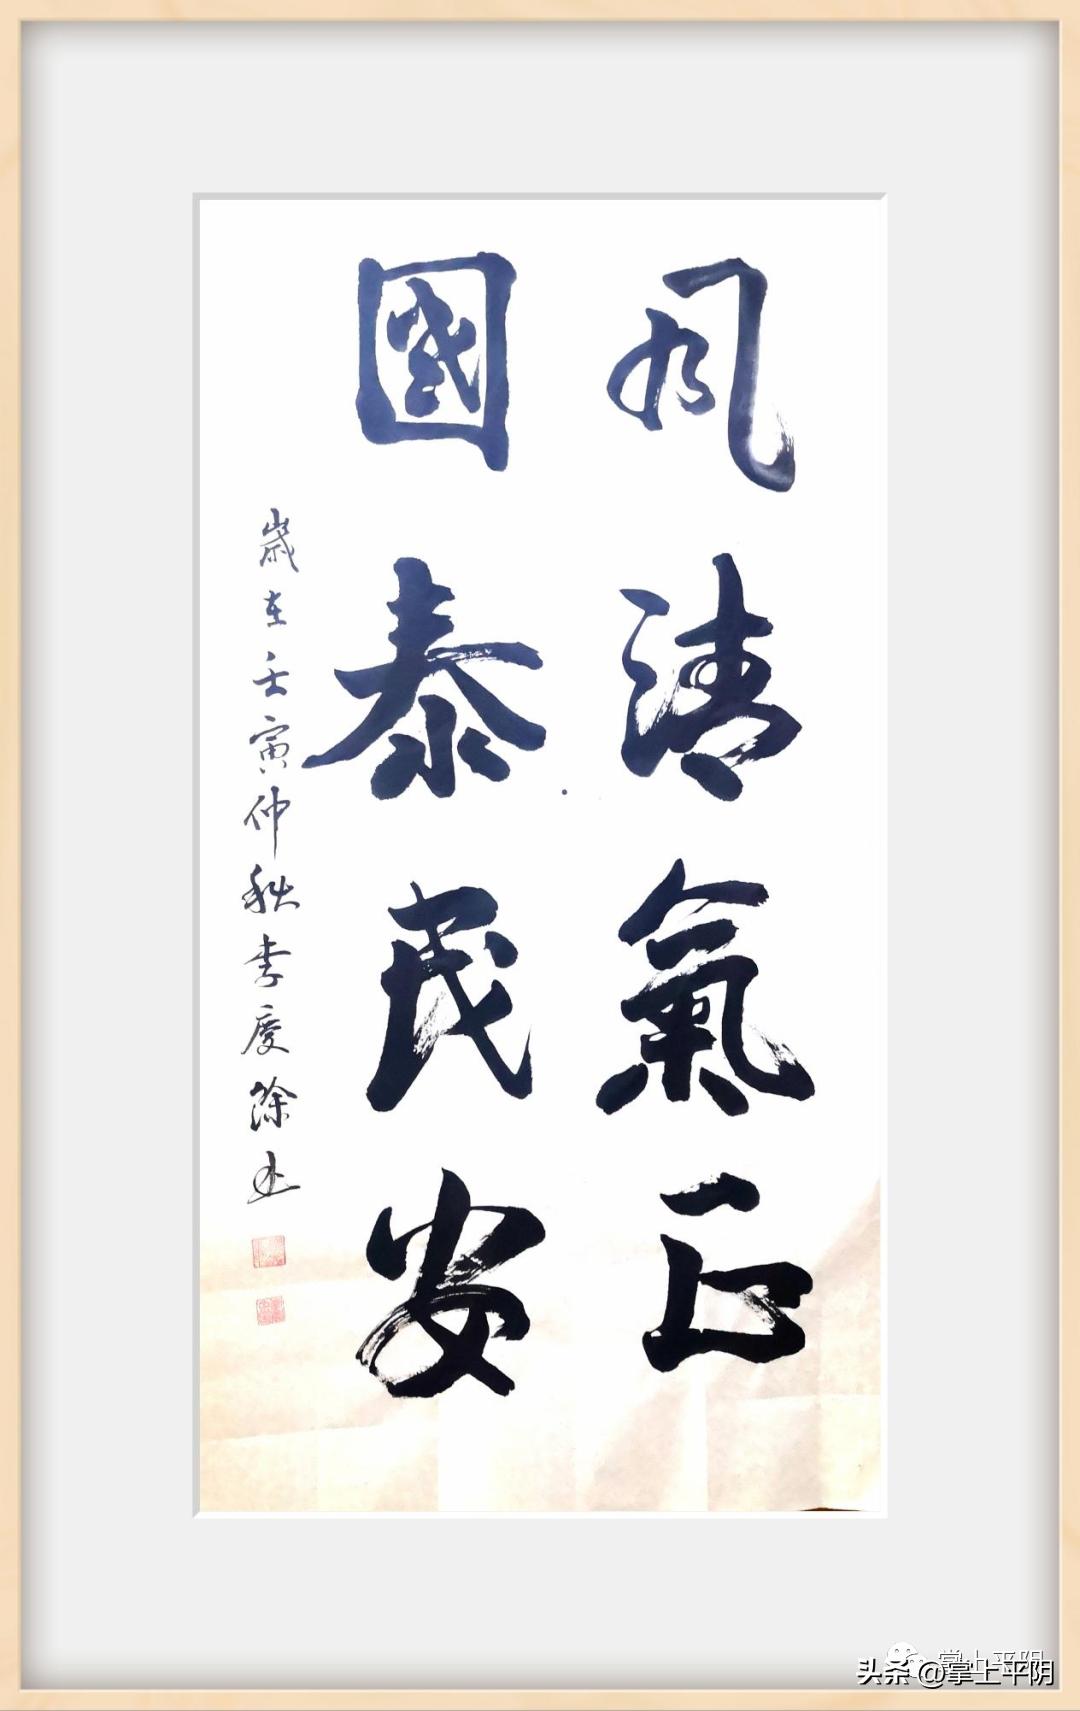 风清氣正
國泰民安
歲在壬寅仲秋李慶餘书
掌上平阴
头条 @掌上平阴